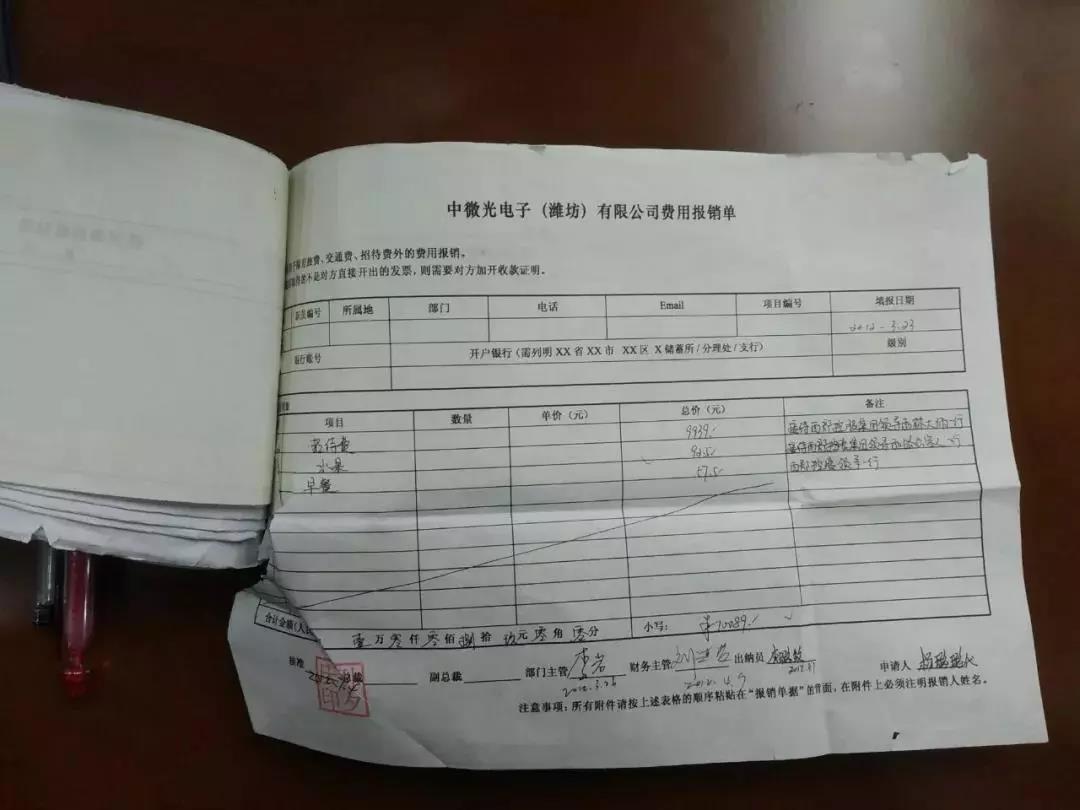 中微光电子（潍坊）有限公司费用报销单
费、交通费、招待费外的费用报销。
不是对方直接开出的发票，则需要对方加开收款证明。
编号 所属地 部门 电话 Email 项目编号 填报日期
2012-3.23
银行账号 开户银行（需列明 XX 省 XX 市 XX 区 X 储蓄所/分理处/支行） 级别
项目 数量 单价（元） 总价（元） 备注
招待费 9939.- 接待西部控股集团领导 一行
水果 92.5/ 接待西部控股集团领导 一行
早餐 57.5/ 西部控股领导一行
合计金额(人 壹万零仟零佰捌拾玖元零角零分 小写： ￥10089./
核准 总裁 副总裁 部门主管 李岩 财务主管 出纳员 申请人
2012.3.26 2012.4.9
注意事项：所有附件请按上述表格的顺序粘贴在“报销单据”的背面，在附件上必须注明报销人姓名。